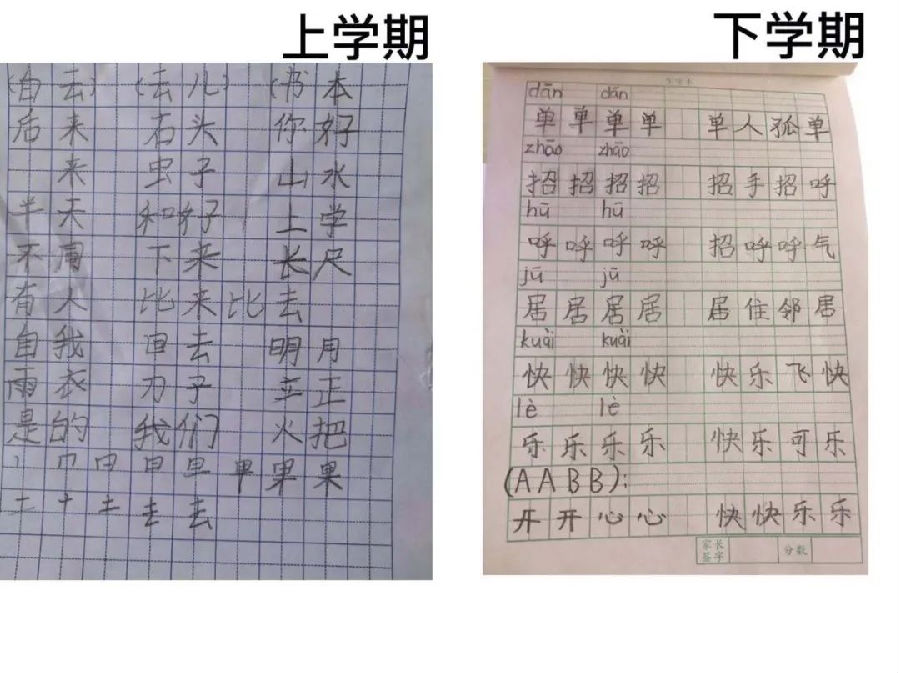 上学期
(自 云) (去 儿) (书 本
后 来 石 头 你 好
来 虫 子 山 水
半 天 和 好 上 学
不 用 下 来 长 尺
有 人 比 来 比 去
自 我 车 去 明 月
雨 衣 力 子 正
是 的 我 们 火 把
果 果
去 去
下学期
dān dān
单 单 单 单 单 人 孤 单
zhāo zhāo
招 招 招 招 招 手 招 呼
hū hū
呼 呼 呼 呼 招 呼 呼 气
jū jū
居 居 居 居 居 住 邻 居
kuài kuài
快 快 快 快 快 乐 飞 快
lè lè
乐 乐 乐 乐 快 乐 可 乐
(AABB):
开 开 心 心 快 快 乐 乐
家长签字 分数